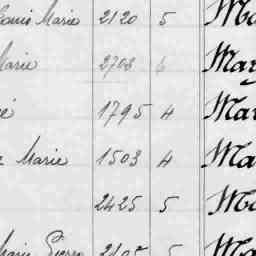 Louis Marie 2120 5 Ma
Marie 2703 6 May
é 1795 4 Mar
Marie 1503 4 Ma
2425 5 Ma
Marie Pierre 5 Ma